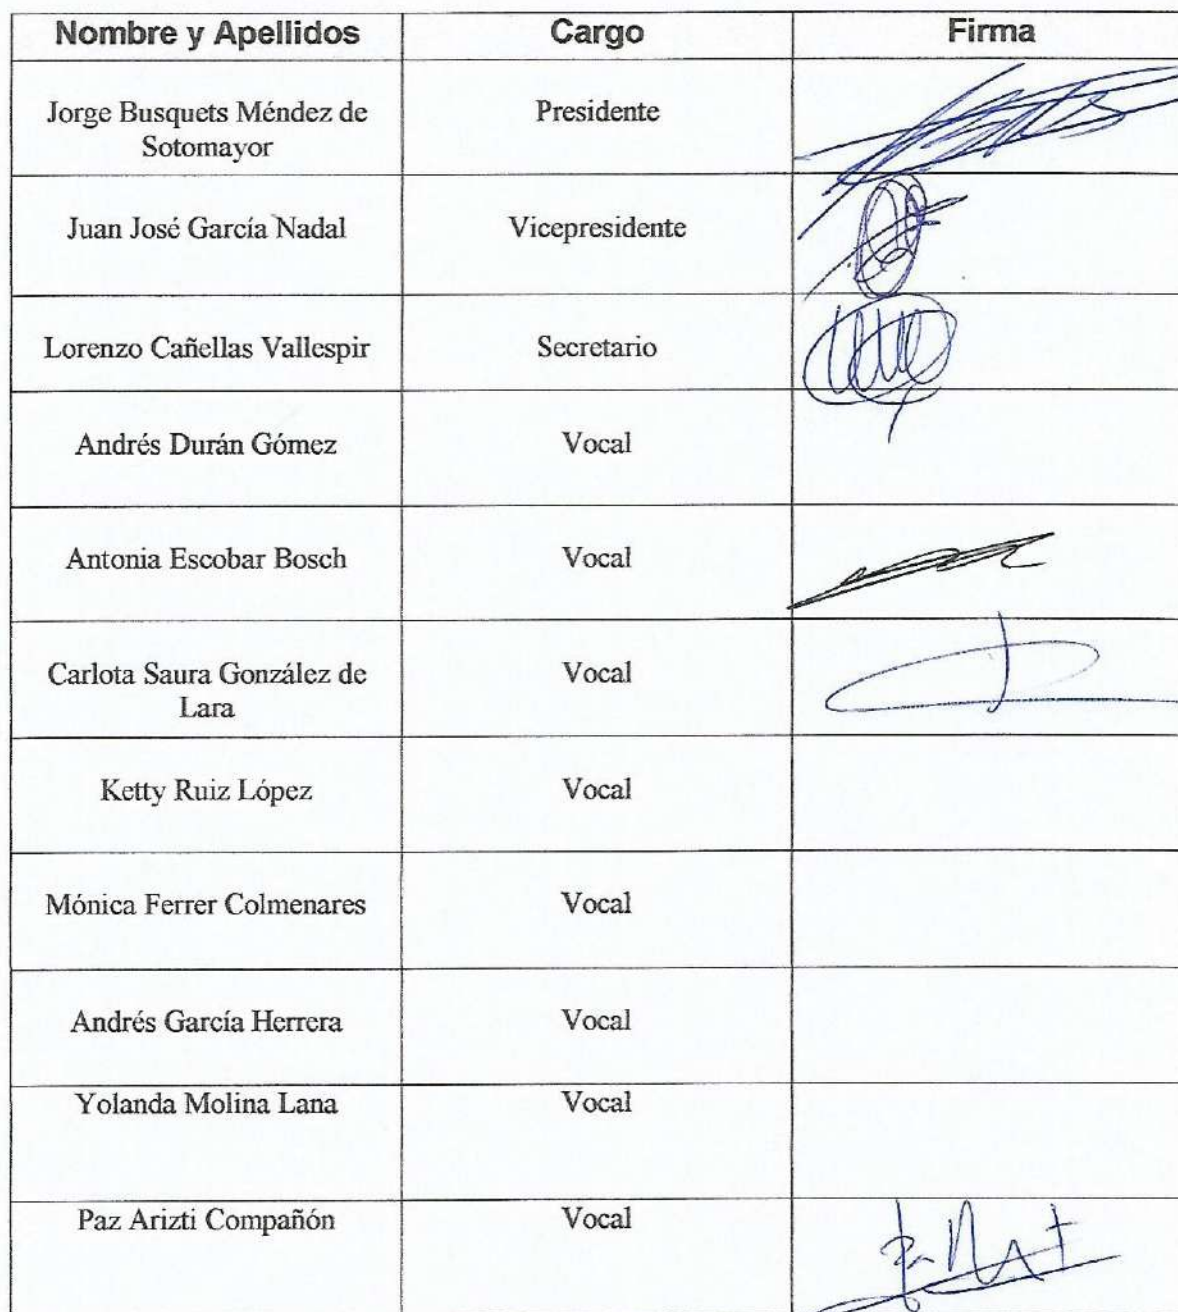 Nombre y Apellidos Cargo Firma
Jorge Busquets Méndez de Presidente
Sotomayor
Juan José García Nadal Vicepresidente
Lorenzo Cañellas Vallespir Secretario
Andrés Durán Gómez Vocal
Antonia Escobar Bosch Vocal
Carlota Saura González de Vocal
Lara
Ketty Ruiz López Vocal
Mónica Ferrer Colmenares Vocal
Andrés García Herrera Vocal
Yolanda Molina Lana Vocal
Paz Arizti Compañón Vocal